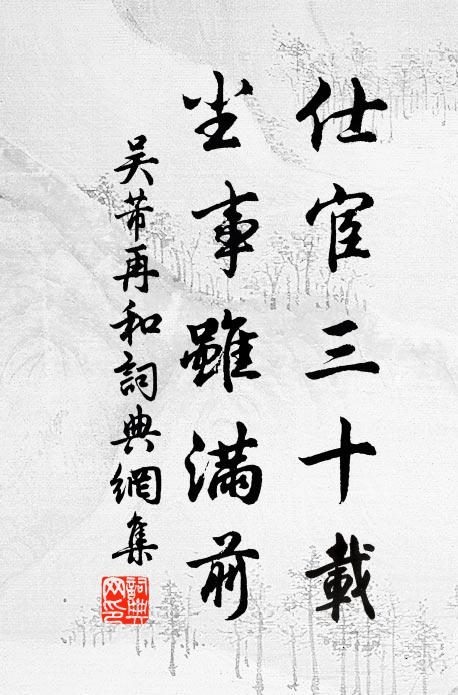 仕宦三十載
尘事雖滿前
吴芾再和詞典網集
詞典网印